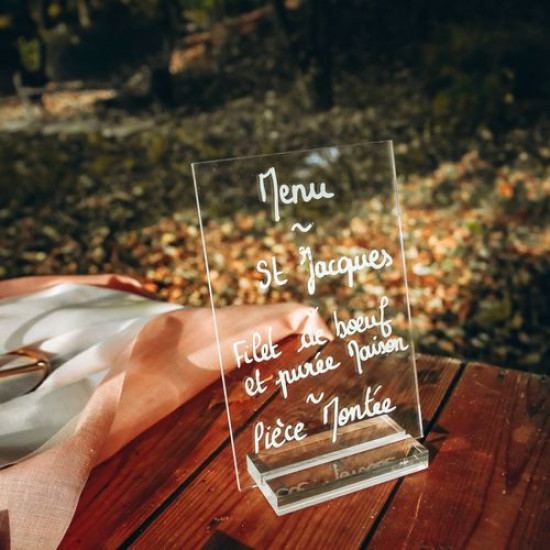 Menu
~
St Jacques
Filet de boeuf
et purée Maison
~
Pièce Montée